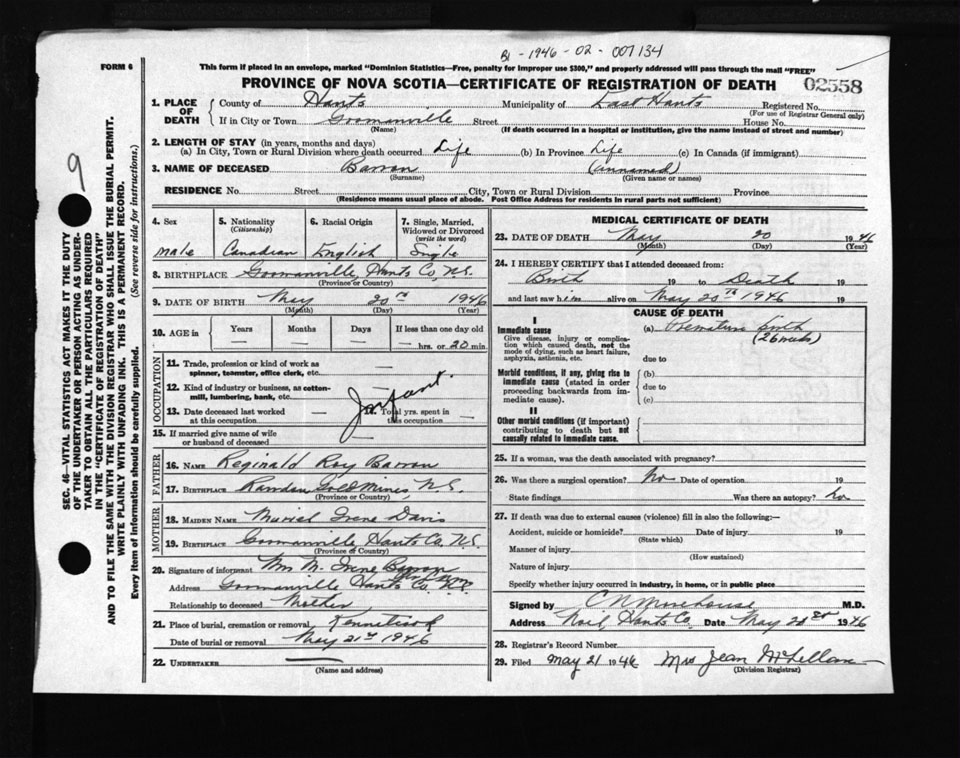 B1-1946-02-007134
FORM 6
This form if placed in an envelope, marked "Dominion Statistics—Free, penalty for improper use $300," and properly addressed will pass through the mail "FREE"
PROVINCE OF NOVA SCOTIA—CERTIFICATE OF REGISTRATION OF DEATH 02558
SEC. 46—VITAL STATISTICS ACT MAKES IT THE DUTY
OF THE UNDERTAKER OR PERSON ACTING AS UNDER-
TAKER TO OBTAIN ALL THE PARTICULARS REQUIRED
IN THE "CERTIFICATE OF REGISTRATION OF DEATH"
AND TO FILE THE SAME WITH THE DIVISION REGISTRAR WHO SHALL ISSUE THE BURIAL PERMIT.
WRITE PLAINLY WITH UNFADING INK. THIS IS A PERMANENT RECORD.
Every item of information should be carefully supplied. (See reverse side for instructions.)
9
1. PLACE OF DEATH
County of Hants Municipality of East Hants Registered No.
(For use of Registrar General only)
If in City or Town Gormanville Street House No.
(Name) (If death occurred in a hospital or institution, give the name instead of street and number)
2. LENGTH OF STAY (in years, months and days)
(a) In City, Town or Rural Division where death occurred Life (b) In Province Life (c) In Canada (if immigrant)
3. NAME OF DECEASED Barron (unnamed)
(Surname) (Given name or names)
RESIDENCE No. Street City, Town or Rural Division Province
(Residence means usual place of abode. Post Office Address for residents in rural parts not sufficient)
4. Sex
male
5. Nationality
(Citizenship)
Canadian
6. Racial Origin
English
7. Single, Married, Widowed or Divorced
(write the word)
Single
8. BIRTHPLACE Gormanville, Hants Co, N.S.
(Province or Country)
9. DATE OF BIRTH May 20th 1946
(Month) (Day) (Year)
10. AGE in Years Months Days If less than one day old
— — — — hrs. or 20 min.
OCCUPATION
11. Trade, profession or kind of work as
spinner, teamster, office clerk, etc. —
12. Kind of industry or business, as cotton-
mill, lumbering, bank, etc. —
Infant.
13. Date deceased last worked
at this occupation —
14. Total yrs. spent in
this occupation —
15. If married give name of wife
or husband of deceased —
FATHER
16. NAME Reginald Roy Barron
17. BIRTHPLACE Rawdon Gold Mines, N.S.
(Province or Country)
MOTHER
18. MAIDEN NAME Muriel Irene Davis
19. BIRTHPLACE Gormanville Hants Co, N.S.
(Province or Country)
20. Signature of informant Mrs M. Irene Barron
Address Gormanville Hants Co. N.S.
Relationship to deceased Mother
21. Place of burial, cremation or removal Kennetcook
Date of burial or removal May 21st 1946
22. UNDERTAKER —
(Name and address)
MEDICAL CERTIFICATE OF DEATH
23. DATE OF DEATH May 20 1946
(Month) (Day) (Year)
24. I HEREBY CERTIFY that I attended deceased from:
Birth 19 to Death 19
and last saw him alive on May 20th 1946 19
CAUSE OF DEATH
I
Immediate cause (a) Premature birth
(26 weeks)
Give disease, injury or complica-
tion which caused death, not the
mode of dying, such as heart failure,
asphyxia, asthenia, etc.
due to
Morbid conditions, if any, giving rise to
immediate cause (stated in order
proceeding backwards from im-
mediate cause).
(b)
due to
(c)
II
Other morbid conditions (if important)
contributing to death but not
causally related to immediate cause.
25. If a woman, was the death associated with pregnancy?
26. Was there a surgical operation? No Date of operation 19
State findings Was there an autopsy? No
27. If death was due to external causes (violence) fill in also the following:—
Accident, suicide or homicide? Date of injury 19
(State which)
Manner of injury
(How sustained)
Nature of injury
Specify whether injury occurred in industry, in home, or in public place
Signed by C N Morehouse M.D.
Address Noel, Hants Co. Date May 20 1946
28. Registrar's Record Number
29. Filed May 21 1946 Mrs Jean McLellan
(Division Registrar)